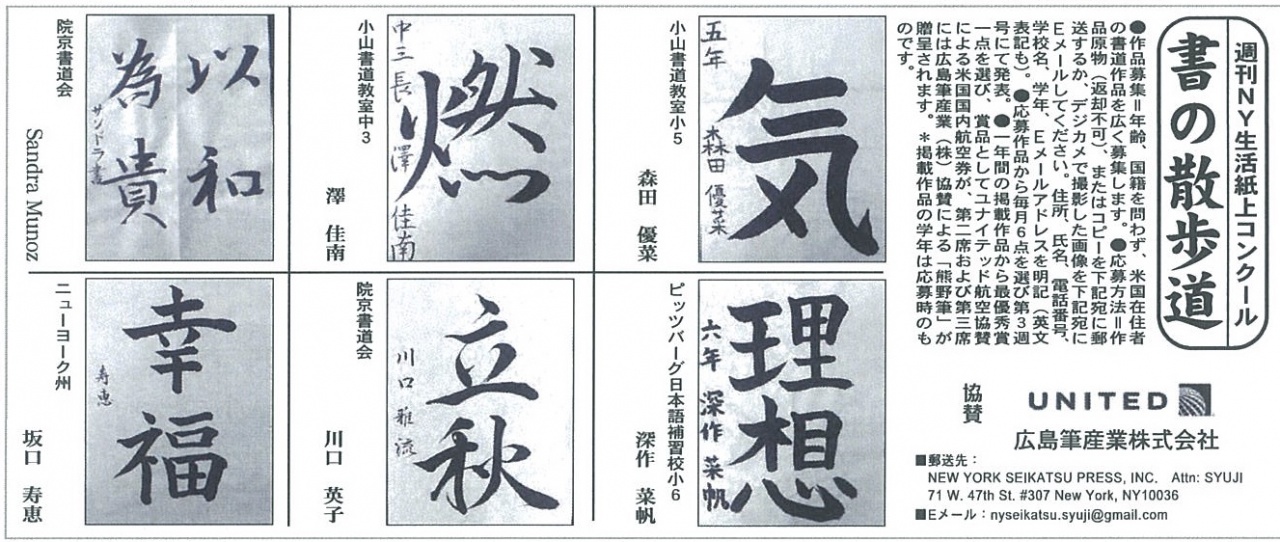 週刊NY生活紙上コンクール
書の散歩道
●作品募集=年齢、国籍を問わず、米国在住者
の書道作品を広く募集します。●応募方法=作
品原物(返却不可)、またはコピーを下記宛に郵
送するか、デジカメで撮影した画像を下記宛に
Eメールしてください。住所、氏名、電話番号、
学校名、学年、Eメールアドレスを明記(英文
表記も)。●応募作品から毎月6点を選び第3週
号にて発表。●一年間の掲載作品から最優秀賞
一点を選び、賞品としてユナイテッド航空協賛
による米国国内航空券が、第二席および第三席
には広島筆産業(株)協賛による「熊野筆」が
贈呈されます。*掲載作品の学年は応募時のも
のです。
協賛
UNITED
広島筆産業株式会社
■郵送先:
NEW YORK SEIKATSU PRESS, INC. Attn: SYUJI
71 W. 47th St. #307 New York, NY10036
■Eメール:nyseikatsu.syuji@gmail.com
気
五年 森田優菜
小山書道教室小5
森田 優菜
燃
中三 長澤佳南
小山書道教室中3
澤 佳南
以和
為貴
サンドラ書
院京書道会
Sandra Munoz
理想
六年 深作菜帆
ピッツバーグ日本語補習校小6
深作 菜帆
立秋
川口雅流
院京書道会
川口 英子
幸福
寿恵
ニューヨーク州
坂口 寿恵